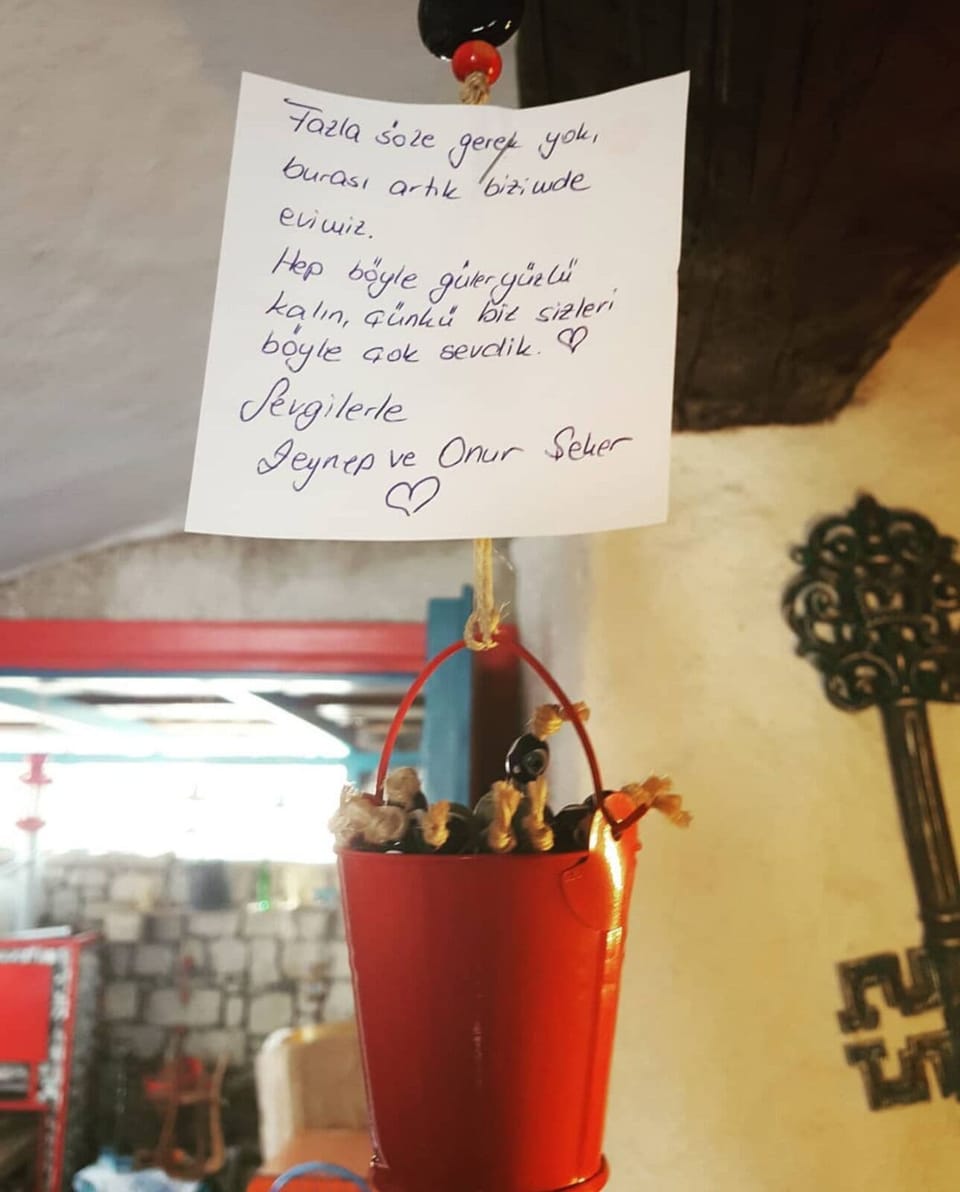 Fazla söze gerek yok,
burası artık bizimde
evimiz.
Hep böyle güleryüzlü
kalın, çünkü biz sizleri
böyle çok sevdik. ♡
Sevgilerle
Zeynep ve Onur Şeker
♡